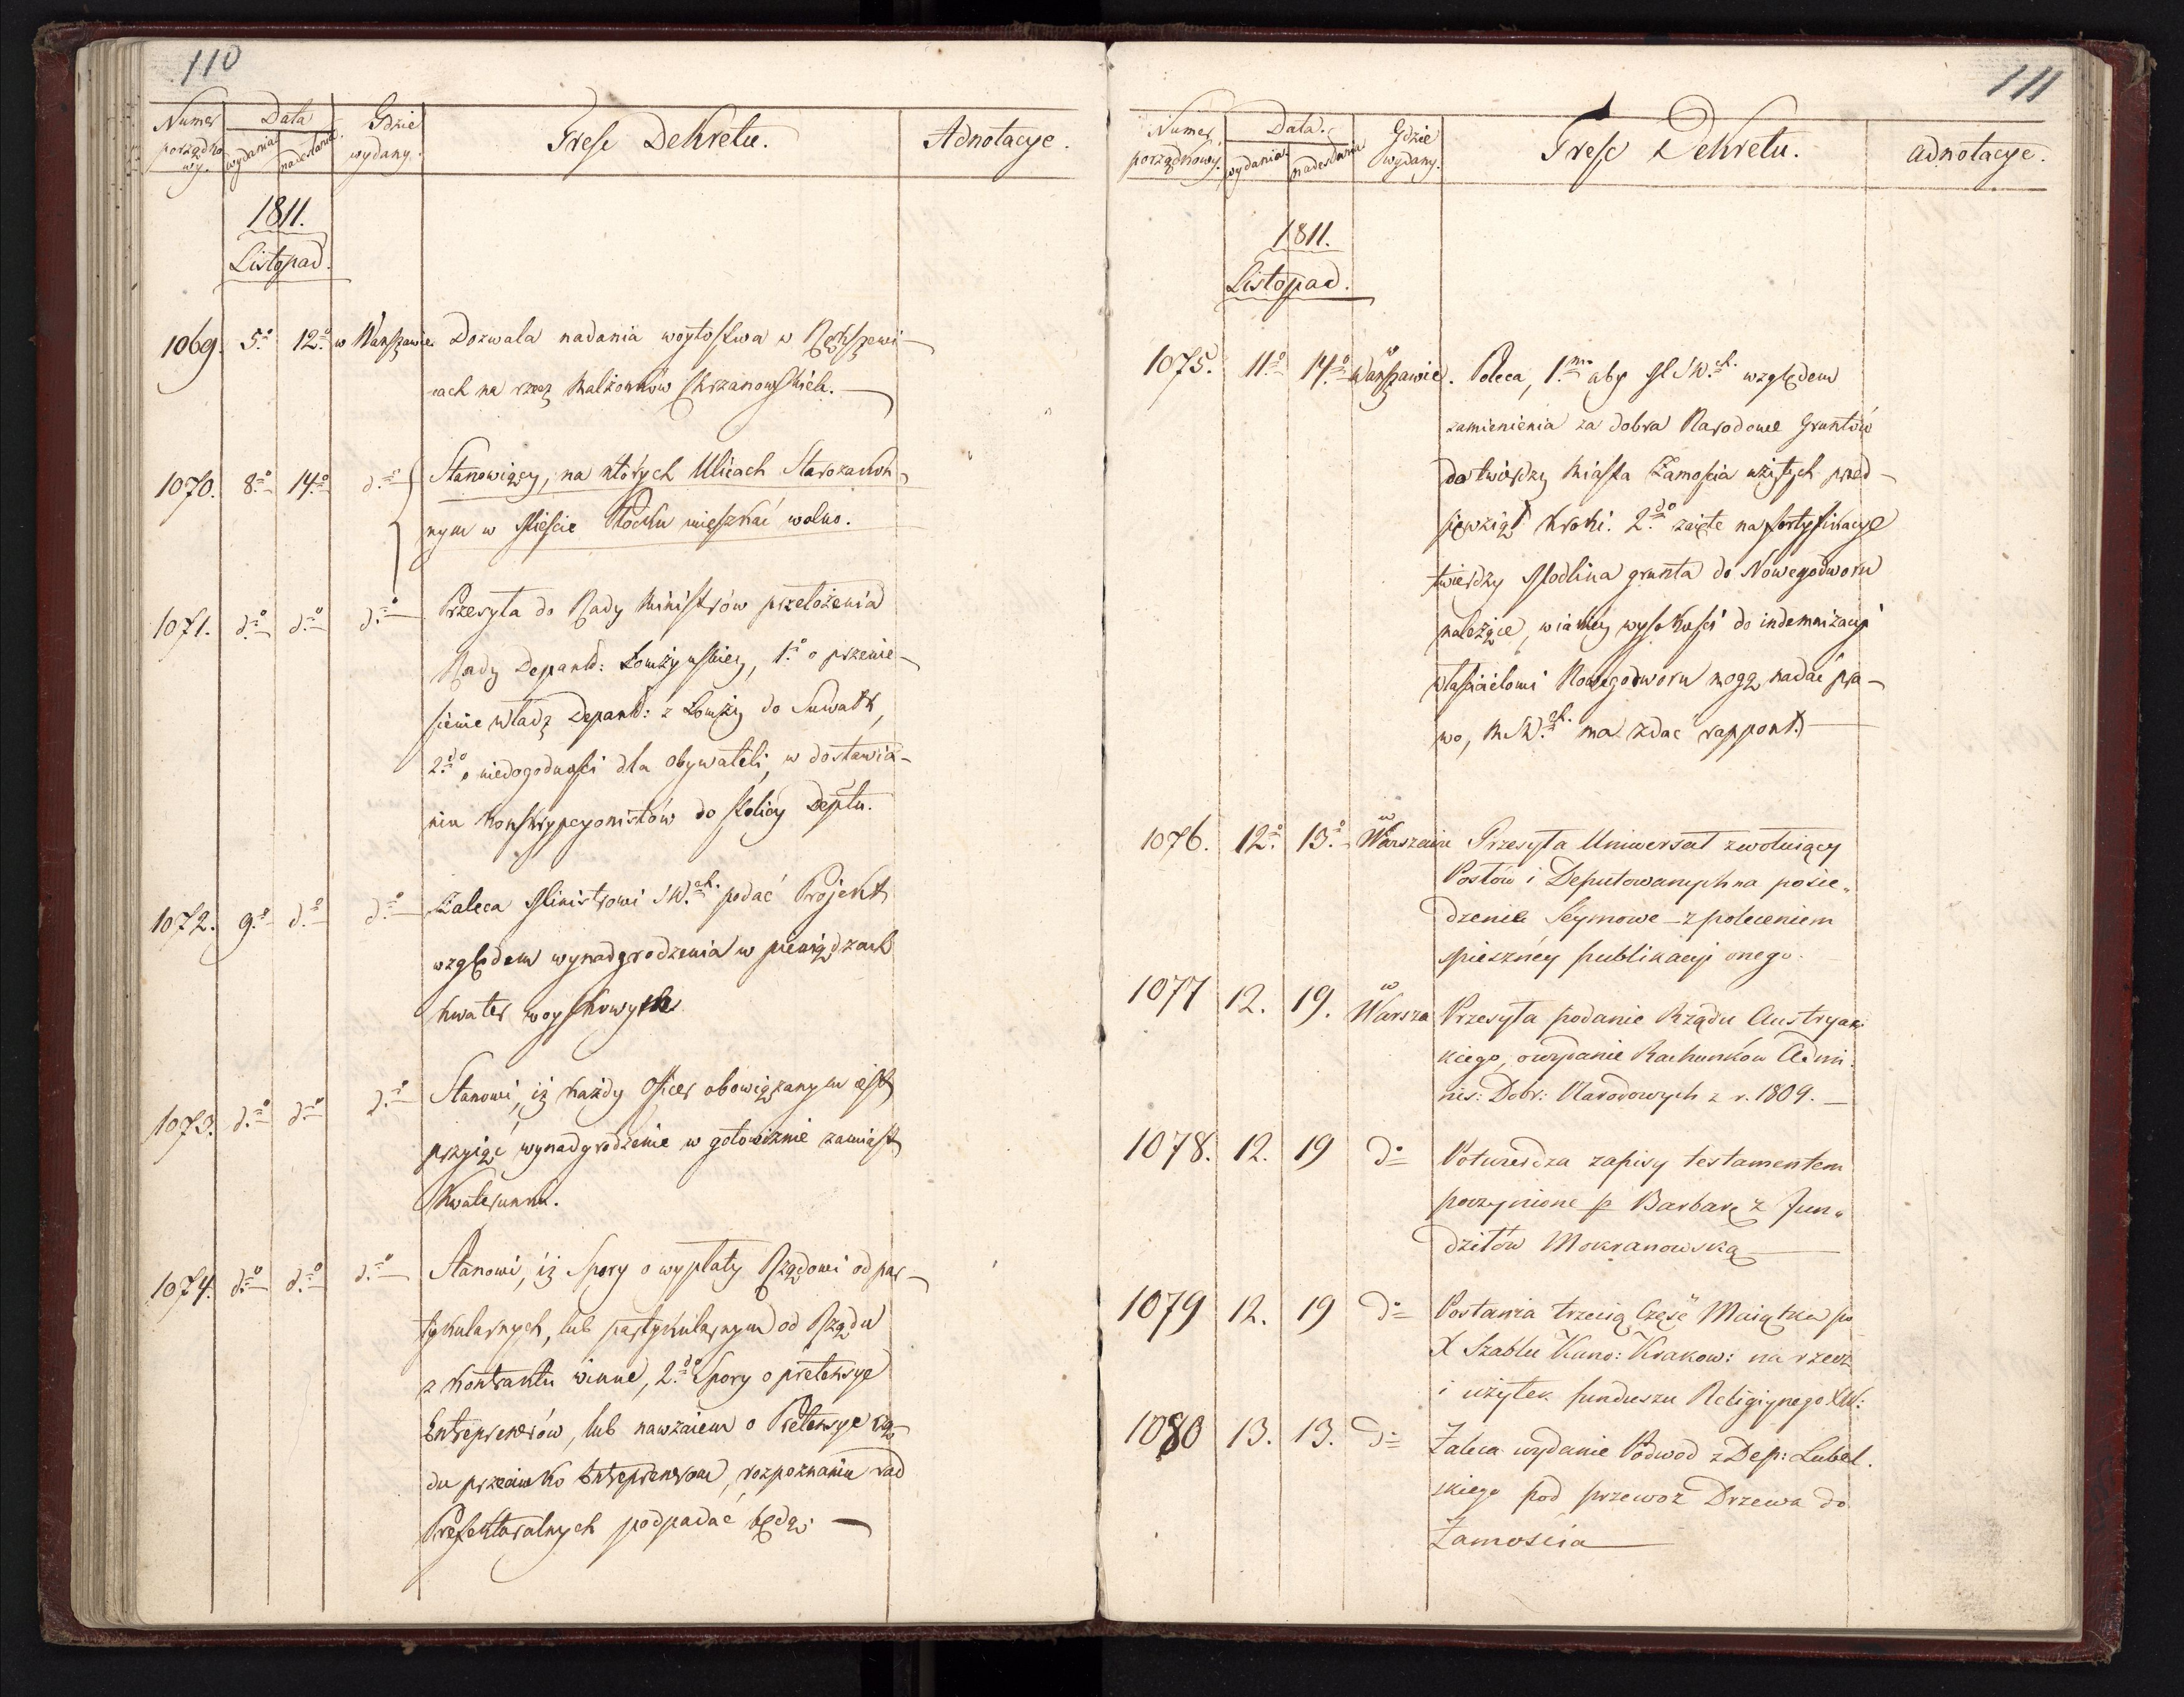 110
Numer porządkowy. Data wydania nadesłania. Gdzie wydany. Treść Dekretu. Adnotacye.
1811.
Listopad.
1069. 5.º 12.º w Warszawie Dozwala nadania woytostwa w
cach na rzecz Małżonków Skrzanowskich.
1070. 8.º 14.º d.º Stanowiący, na których Ulicach Starozakon-
nym w Mieście Płocku mięszkać wolno.
1071. d.º d.º d.º Przesyła do Rady Ministrów przełożenia
Rady Depart: Łomżyńskiey, 1.º o przenie-
sienie władz Depart: z Łomży do Suwałk,
2.do o niedogodności dla Obywateli, w dostawia-
niu konskrypcyonistów do stolicy Deptu.
1072. 9.º d.º d.º Zaleca Ministrowi SW.ch. podać Projekt
względem wynadgrodzenia w pieniądzach
kwater woyskowych
1073. d.º d.º d.º Stanowi, iż każdy Officer obowiązanym iest
przyiąć wynadgrodzenie w gotowiznie zamiast
Kwaterunku.
1074. d.º d.º d.º Stanowi, iż Spory o wypłaty Rządowi od par-
tykularnych, lub partykularnym od Rządu
z kontraktu winne, 2.do Spory o pretensye
Entreprenerów, lub nawzaiem o Pretensye Rzą-
du przeciwko Entreprenerom, rozpoznaniu rad
Prefekturalnych podpadać będą.
111
Numer porządkowy. Data. wydania nadesłania Gdzie wydany. Treść Dekretu. adnotacye.
1811.
Listopad.
1075. 11.º 14.º w Warszawie. Poleca, 1.mo aby MSW.ch. względem
zamienienia za dobra Narodowe Gruntów
do twierdzy miasta Zamościa użytych przed-
sięwziął kroki. 2.do zaięte na fortyfikacye
twierdzy Modlina grunta do Nowegodworu
należące, w iakiey wysokości do indemnizacyi
właścicielowi Nowegodworu mogą nadać pra-
wo, MSW.ch. ma zdać rapport.
1076. 12.º 13.º w Warszawie Przesyła Uniwersał zwołuiący
Posłów i Deputowanych na posie„
dzenie Seymowe z poleceniem
spieszney publikacyi onego.
1077 12. 19. w Warsza Przesyła podanie Rządu Austryac
kiego, o wydanie Rachunków Admi.
nis: Dobr: Narodowych z r. 1809.
1078. 12. 19 do Potwierdza zapisy testamentem
poczynione p Barbarę z Jun„
dziłłów Mokranowską
1079 12. 19 do Postania trzecią Część Maiątku po
X Szablu Kano: Krakow: na rzecz
i użytek funduszu Religiynego XW:
1080 13. 13. do Zaleca wydanie Podwod z Dep: Lubel.
skiego pod przewoz Drzewa do
Zamościa